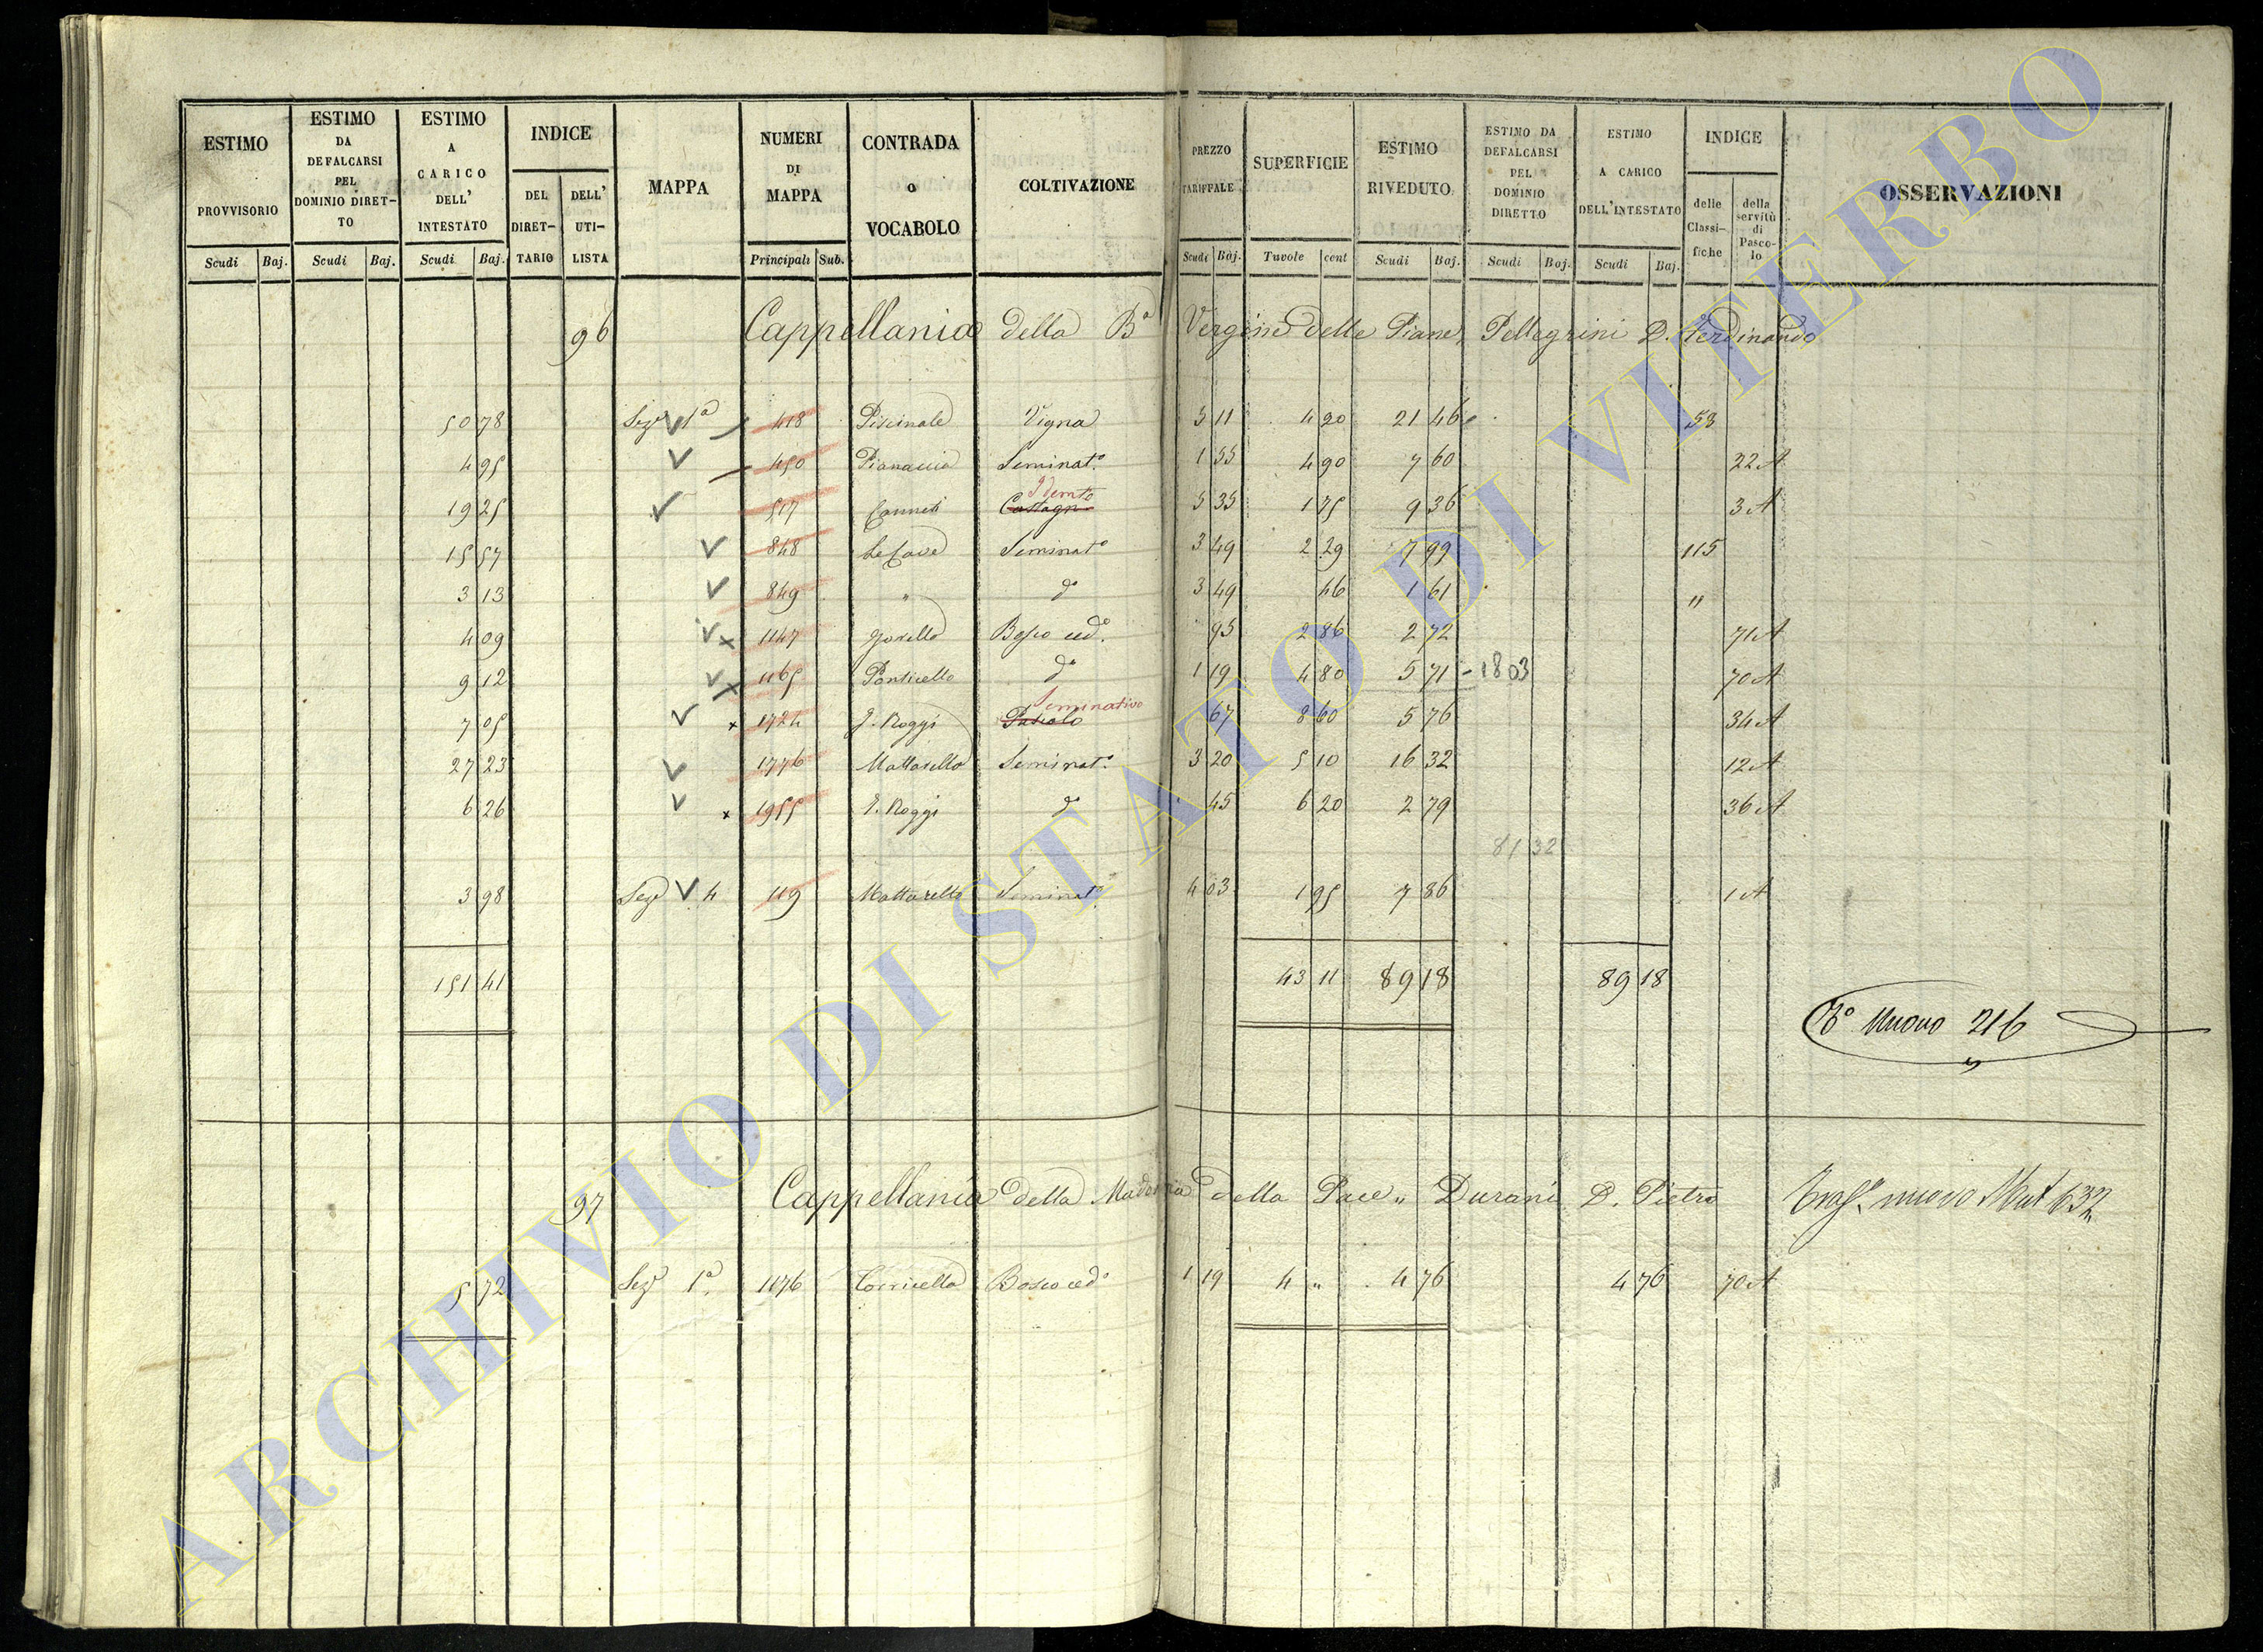 ESTIMO PROVVISORIO
ESTIMO DA DEFALCARSI PEL DOMINIO DIRET-TO
ESTIMO A CARICO DELL' INTESTATO
INDICE
DEL DIRET-TARIO
DELL' UTI-LISTA
MAPPA
NUMERI DI MAPPA
CONTRADA o VOCABOLO
COLTIVAZIONE
PREZZO TARIFFALE
SUPERFICIE
ESTIMO RIVEDUTO
ESTIMO DA DEFALCARSI PEL DOMINIO DIRETTO
ESTIMO A CARICO DELL'INTESTATO
INDICE
delle Classi-fiche
della servitù di Pasco-lo
OSSERVAZIONI
Scudi Baj. Scudi Baj. Scudi Baj. Principali Sub. Scudi Baj. Tavole cent Scudi Baj. Scudi Baj. Scudi Baj.
96 Cappellania della Bª Vergine delle Piane, Pellegrini D. Ferdinando
50 78 Sezᵉ 1ª 418 Piscinale Vigna 5 11 4 20 21 46 53
4 95 450 Pianaccia Seminat.º 1 55 4 90 7 60 22 A
19 25 517 Canneti Castagn 5 35 1 75 9 36 3 A
15 57 848 Le Cave Seminatº 3 49 2 29 7 99 115
3 13 849 " dº 3 49 46 1 61 "
4 09 1147 Bosco cedº. 95 2 86 2 72 71 A
9 12 1165 Ponticello dº 1 19 4 80 5 71 - 1803 70 A
Seminativo
7 05 1724 F. Roggi Pascolo 67 8 60 5 76 34 A
27 23 1776 Mattarello Seminat.º 3 20 5 10 16 32 12 A
6 26 1955 F. Roggi dº 45 6 20 2 79 36 A
81 32
3 98 Sezᵉ 4 119 Mattarello Seminatº. 4 03 1 95 7 86 1 A
151 41 43 11 89 18 89 18
Nuovo 216
97 Cappellania della Madonna della Pace " Durani D. Pietro nuovo Mut 632
5 72 Sezᵉ 1ª 1176 Torricella Bosco cedº 1 19 4 " 4 76 4 76 70 A
ARCHIVIO DI STATO DI VITERBO